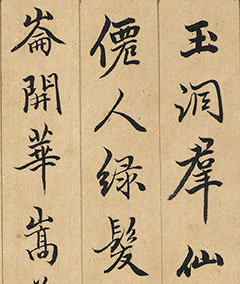 玉洞羣仙
僊人綠髮
崙開華嵩